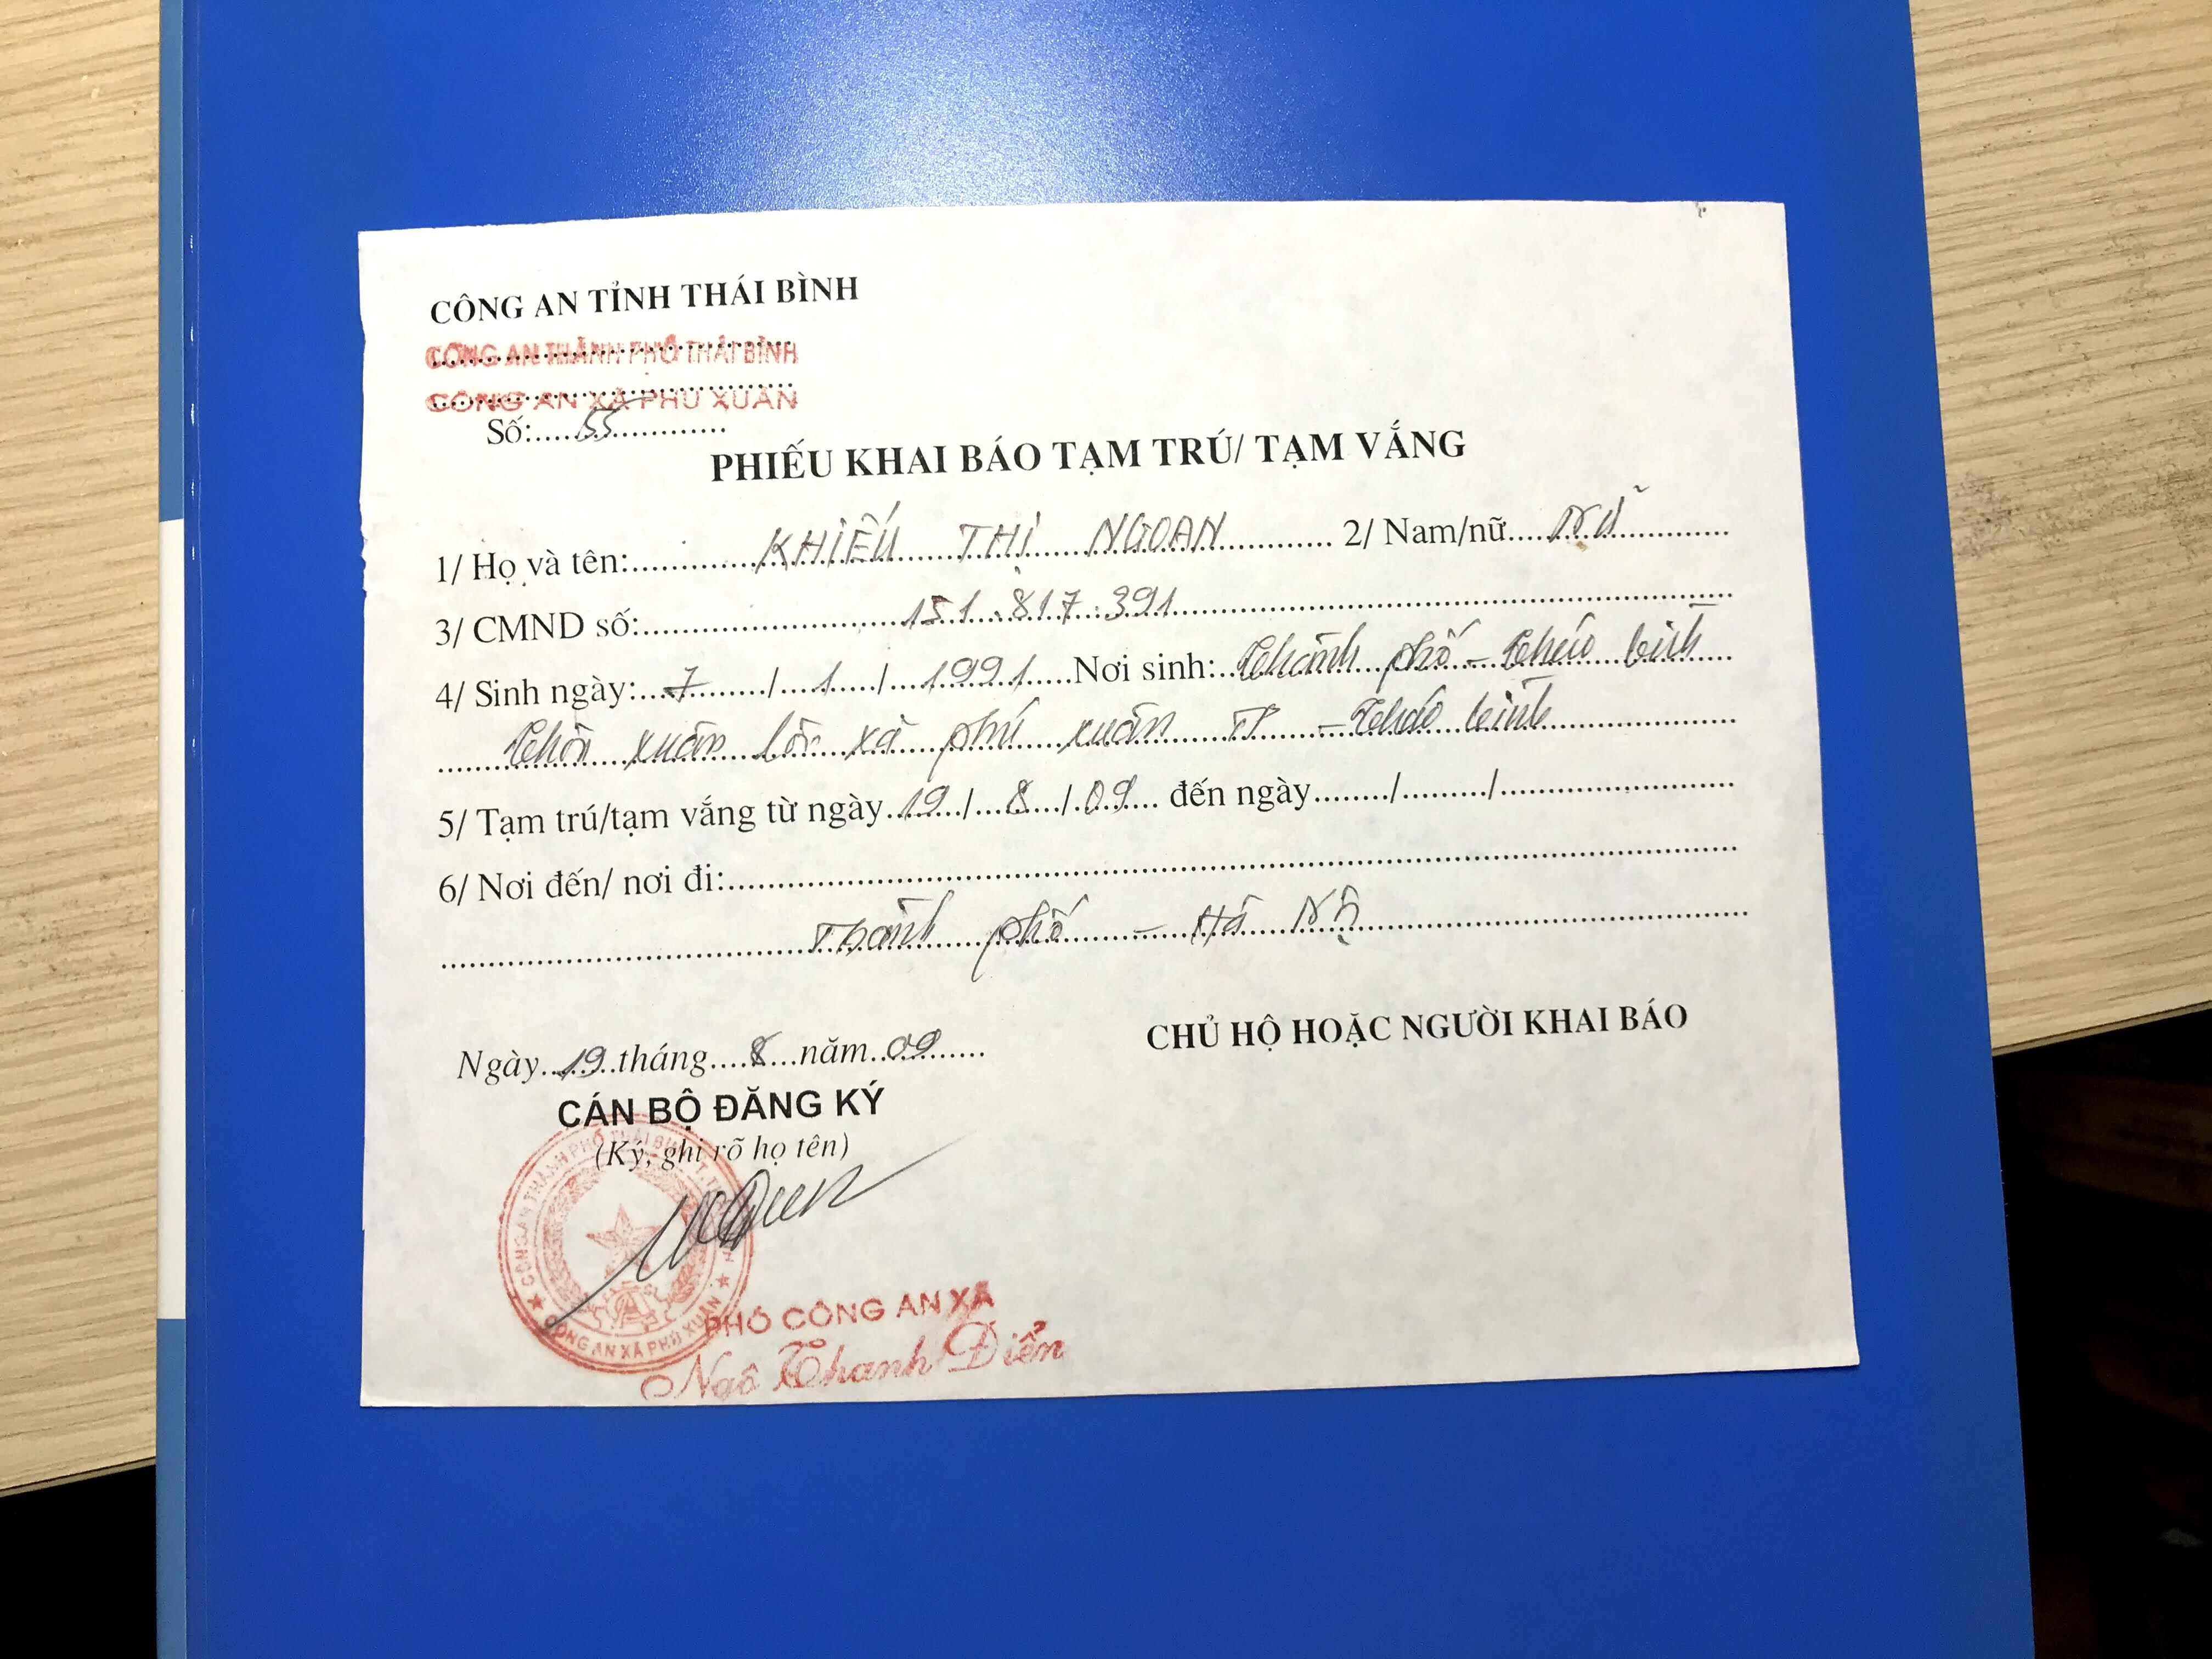 CÔNG AN TỈNH THÁI BÌNH
CÔNG AN THÀNH PHỐ THÁI BÌNH
CÔNG AN XÃ PHÚ XUÂN
Số:
PHIẾU KHAI BÁO TẠM TRÚ/ TẠM VẮNG
1/ Họ và tên: KHIẾU THỊ NGOAN 2/ Nam/nữ Nữ
3/ CMND số: 151.817.391
4/ Sinh ngày: 7 / 1 / 1991 Nơi sinh: Thành phố - Thái bình
Thôn xuân lộc xã phú xuân TP - Thái bình
5/ Tạm trú/tạm vắng từ ngày 19 / 8 / 09 đến ngày / /
6/ Nơi đến/ nơi đi:
Thành phố - Hà Nội
Ngày 19 tháng 8 năm 09
CÁN BỘ ĐĂNG KÝ
(Ký, ghi rõ họ tên)
CHỦ HỘ HOẶC NGƯỜI KHAI BÁO
CÔNG AN THÀNH PHỐ THÁI BÌNH
CÔNG AN XÃ PHÚ XUÂN
PHÓ CÔNG AN XÃ
Ngô Thanh Điểm